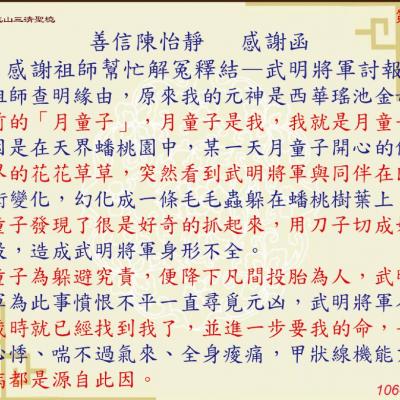 山三清聖境
善信陳怡靜 感謝函
感謝祖師幫忙解冤釋結—武明將軍討報
祖師查明緣由，原來我的元神是西華瑤池金
前的「月童子」，月童子是我，我就是月童
因是在天界蟠桃園中，某一天月童子開心的
界的花花草草，突然看到武明將軍與同伴在
術變化，幻化成一條毛毛蟲躲在蟠桃樹葉上
童子發現了很是好奇的抓起來，用刀子切成
段，造成武明將軍身形不全。
童子為躲避究責，便降下凡間投胎為人，武明
軍為此事憤恨不平一直尋覓元凶，武明將軍
歲時就已經找到我了，並進一步要我的命，
心悸、喘不過氣來、全身痠痛，甲狀線機能
病都是源自此因。
106